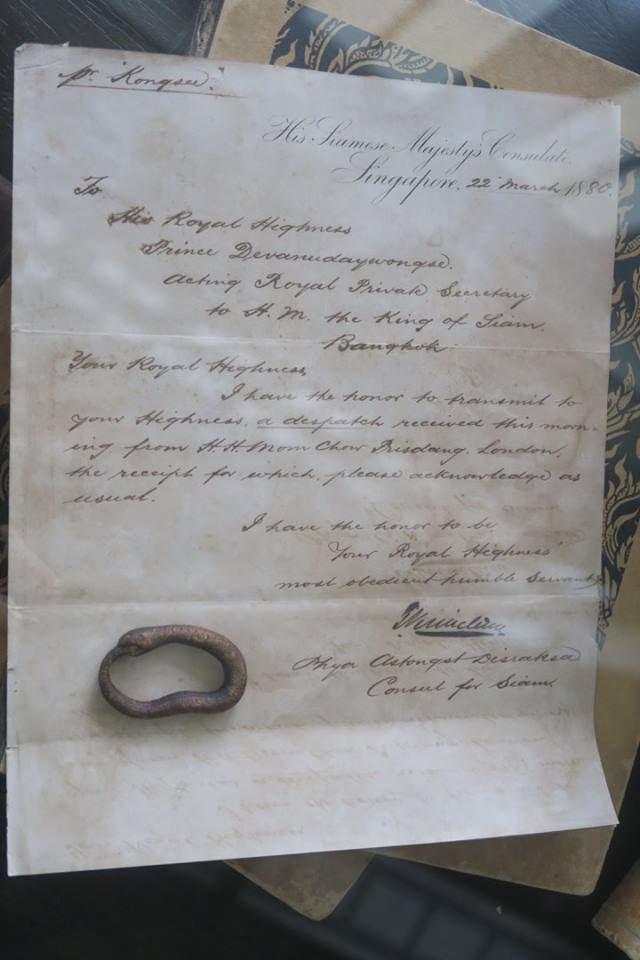 pr. "Kongsee."
His Siamese Majesty's Consulate,
Singapore, 22 March 1880.
To
His Royal Highness
Prince Devanudaywongse.
Acting Royal Private Secretary
to H. M. the King of Siam.
Bangkok
Your Royal Highness,
I have the honor to transmit to
your Highness, a despatch received this morn-
ing from H. H. Mom Chow Prisdang, London,
the receipt for which, please acknowledge as
usual.
I have the honor to be,
Your Royal Highness'
most obedient humble Servant,
Phya Astongst Disraksa
Consul for Siam.